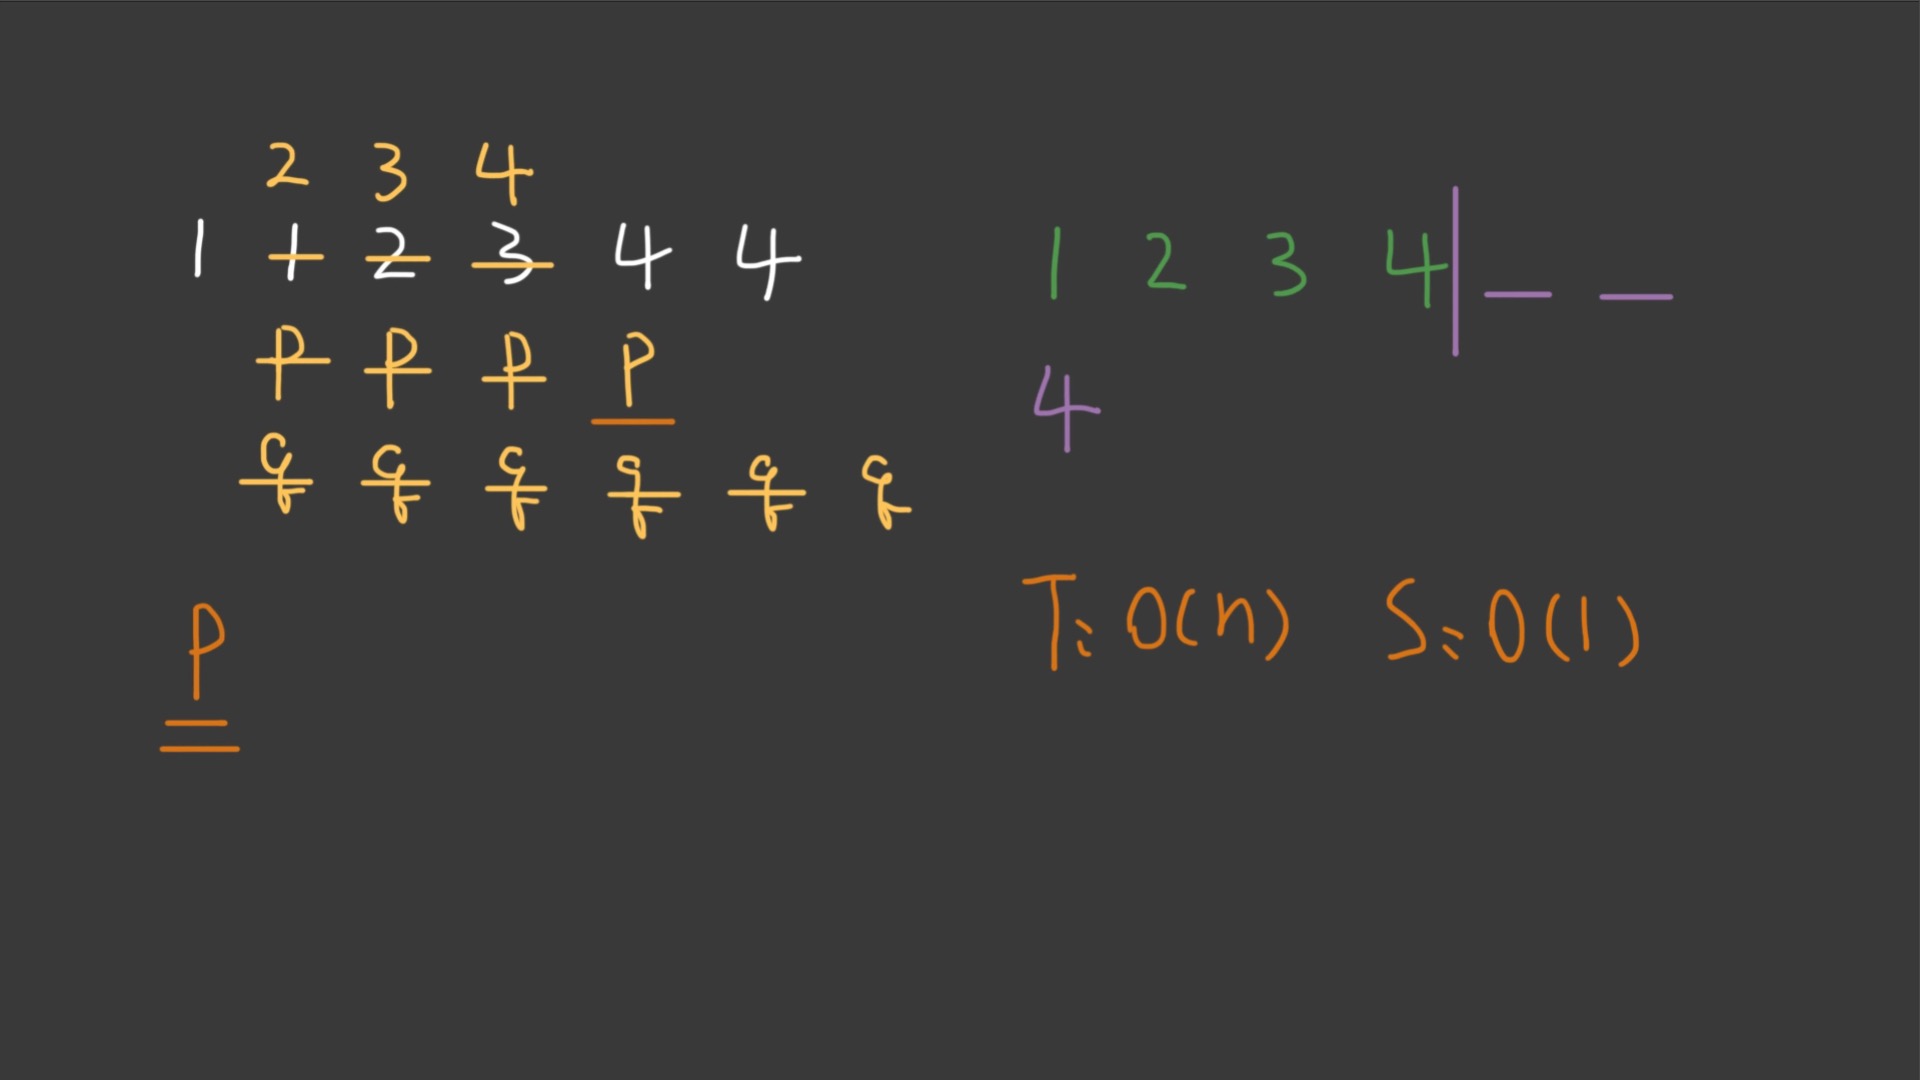 2 3 4
1 1 2 3 4 4
p p p p
q q q q q q
p
1 2 3 4
4
T: O(n) S: O(1)